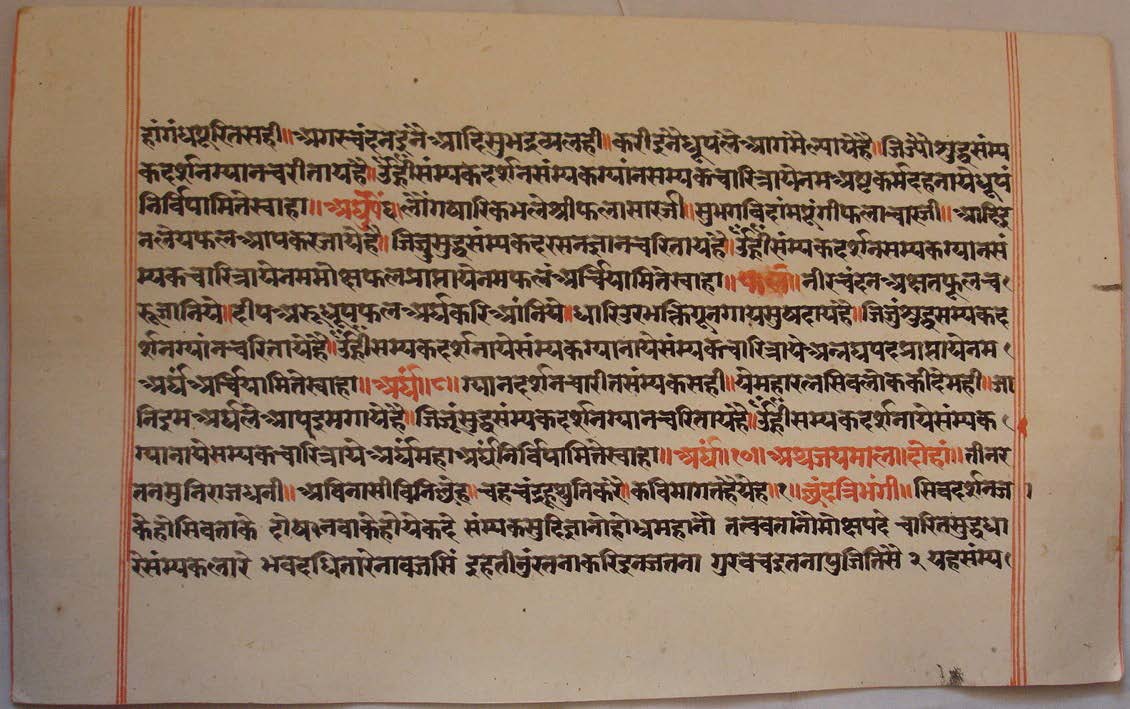 हांगंधपूरितसही॥अगरचंदनइंनेआदिसुभद्रव्यलही॥करीइनेधूपंलेआगंमेल्यायेहै॥जिज्पोशुद्धसंम्य
कदर्शनग्यानचरीतायहै॥ॐह्रींसंम्यकदर्शनसंम्यकग्यांनसम्यकचारित्रायेनमअष्टकर्मदहनायेधूपं
निर्विपामितेस्वाहा॥लौंगषारिकभलेश्रीफलासारजी॥सुभगबिदांमपूंगीफलाचारजी॥आदिइ
नलेयफलआपकरजायेहै॥जिज्रुसुद्धसंम्यकदरसनज्ञानचरितायहै॥ॐह्रींसंम्यकदर्शनसम्यकग्यानसं
म्यकचारित्रायेनममोक्षफलप्राप्तायेनमफलंअर्चियामितेस्वाहा॥फलं॥नीरचंदनअक्षतफूलच
रूजानिये॥दीपअरूधूपफलअर्घकरिआंनिये॥धारिउरभक्तिगूनगायसुषदायेहै॥जिजुंशुद्धसम्यकद
र्शनग्यांनचरितायेहै॥ॐह्रींसम्यकदर्शनायेसंम्यकग्यानायेसंम्यकचारित्रायेअनघपदप्राप्तायेनम
अर्घंअर्चियामितेस्वाहा॥अर्घं॥९॥ग्यानदर्शनचारीतसंम्यकसही॥येमहारत्नसिवलोककीदेमही॥जा
निइमअर्घलेआपइमगायेहै॥जिजुंसुद्धसंम्यकदर्शनग्यानचरितायेहै॥ॐह्रींसम्यकदर्शनायेसंम्यक
ग्यानायेसम्यकचारित्रायेअर्घंमहाअर्घंनिर्विपामितेस्वाहा॥अर्घं॥१०॥अथजयमाला॥दोहा॥तीनर
तनमुनिराजधनी॥अविनासीविनि चहचंद्रहूथुतिकरे॥कविमागतहैयेह॥१॥छंदत्रिभंगी॥सिवदर्शनज
केहोसिवताके दोषनवाकेहोयेकदे संम्यकसुदिज्ञानोहोधमहानो तत्ववतानोमोक्षपदे चारितसुद्धधा
रेसंम्यकलारे भवदधितारेनावजसिं दुहतीनुंरतनाकरिइनजतना गुरवचइतनापुजितिसे २ यहसंम्य